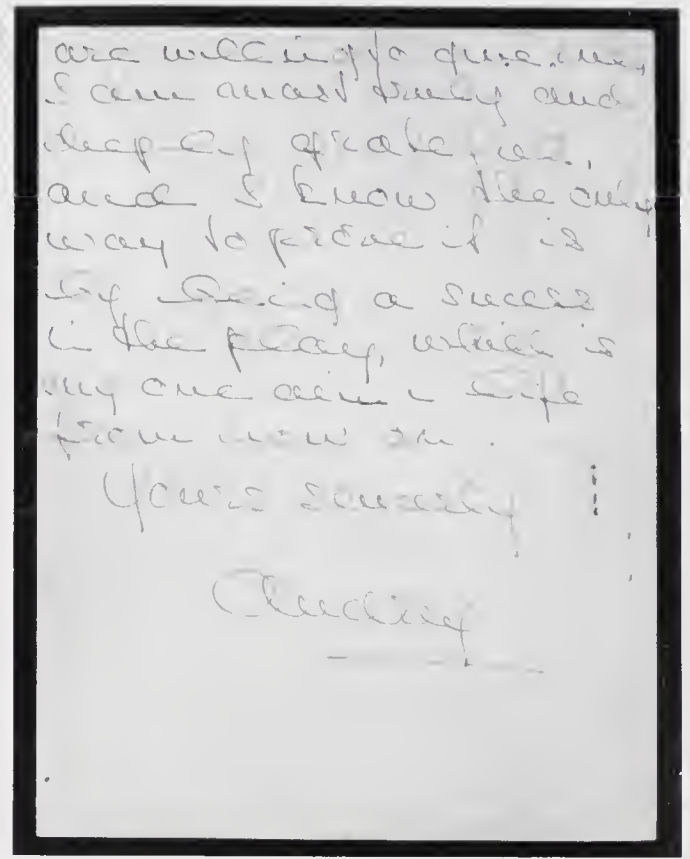 are willing to give me,
I am most truly and
deeply grateful,
and I know the only
way to prove it is
by being a success
in the play, which is
my one aim in life
from now on.
Yours sincerely
Audrey